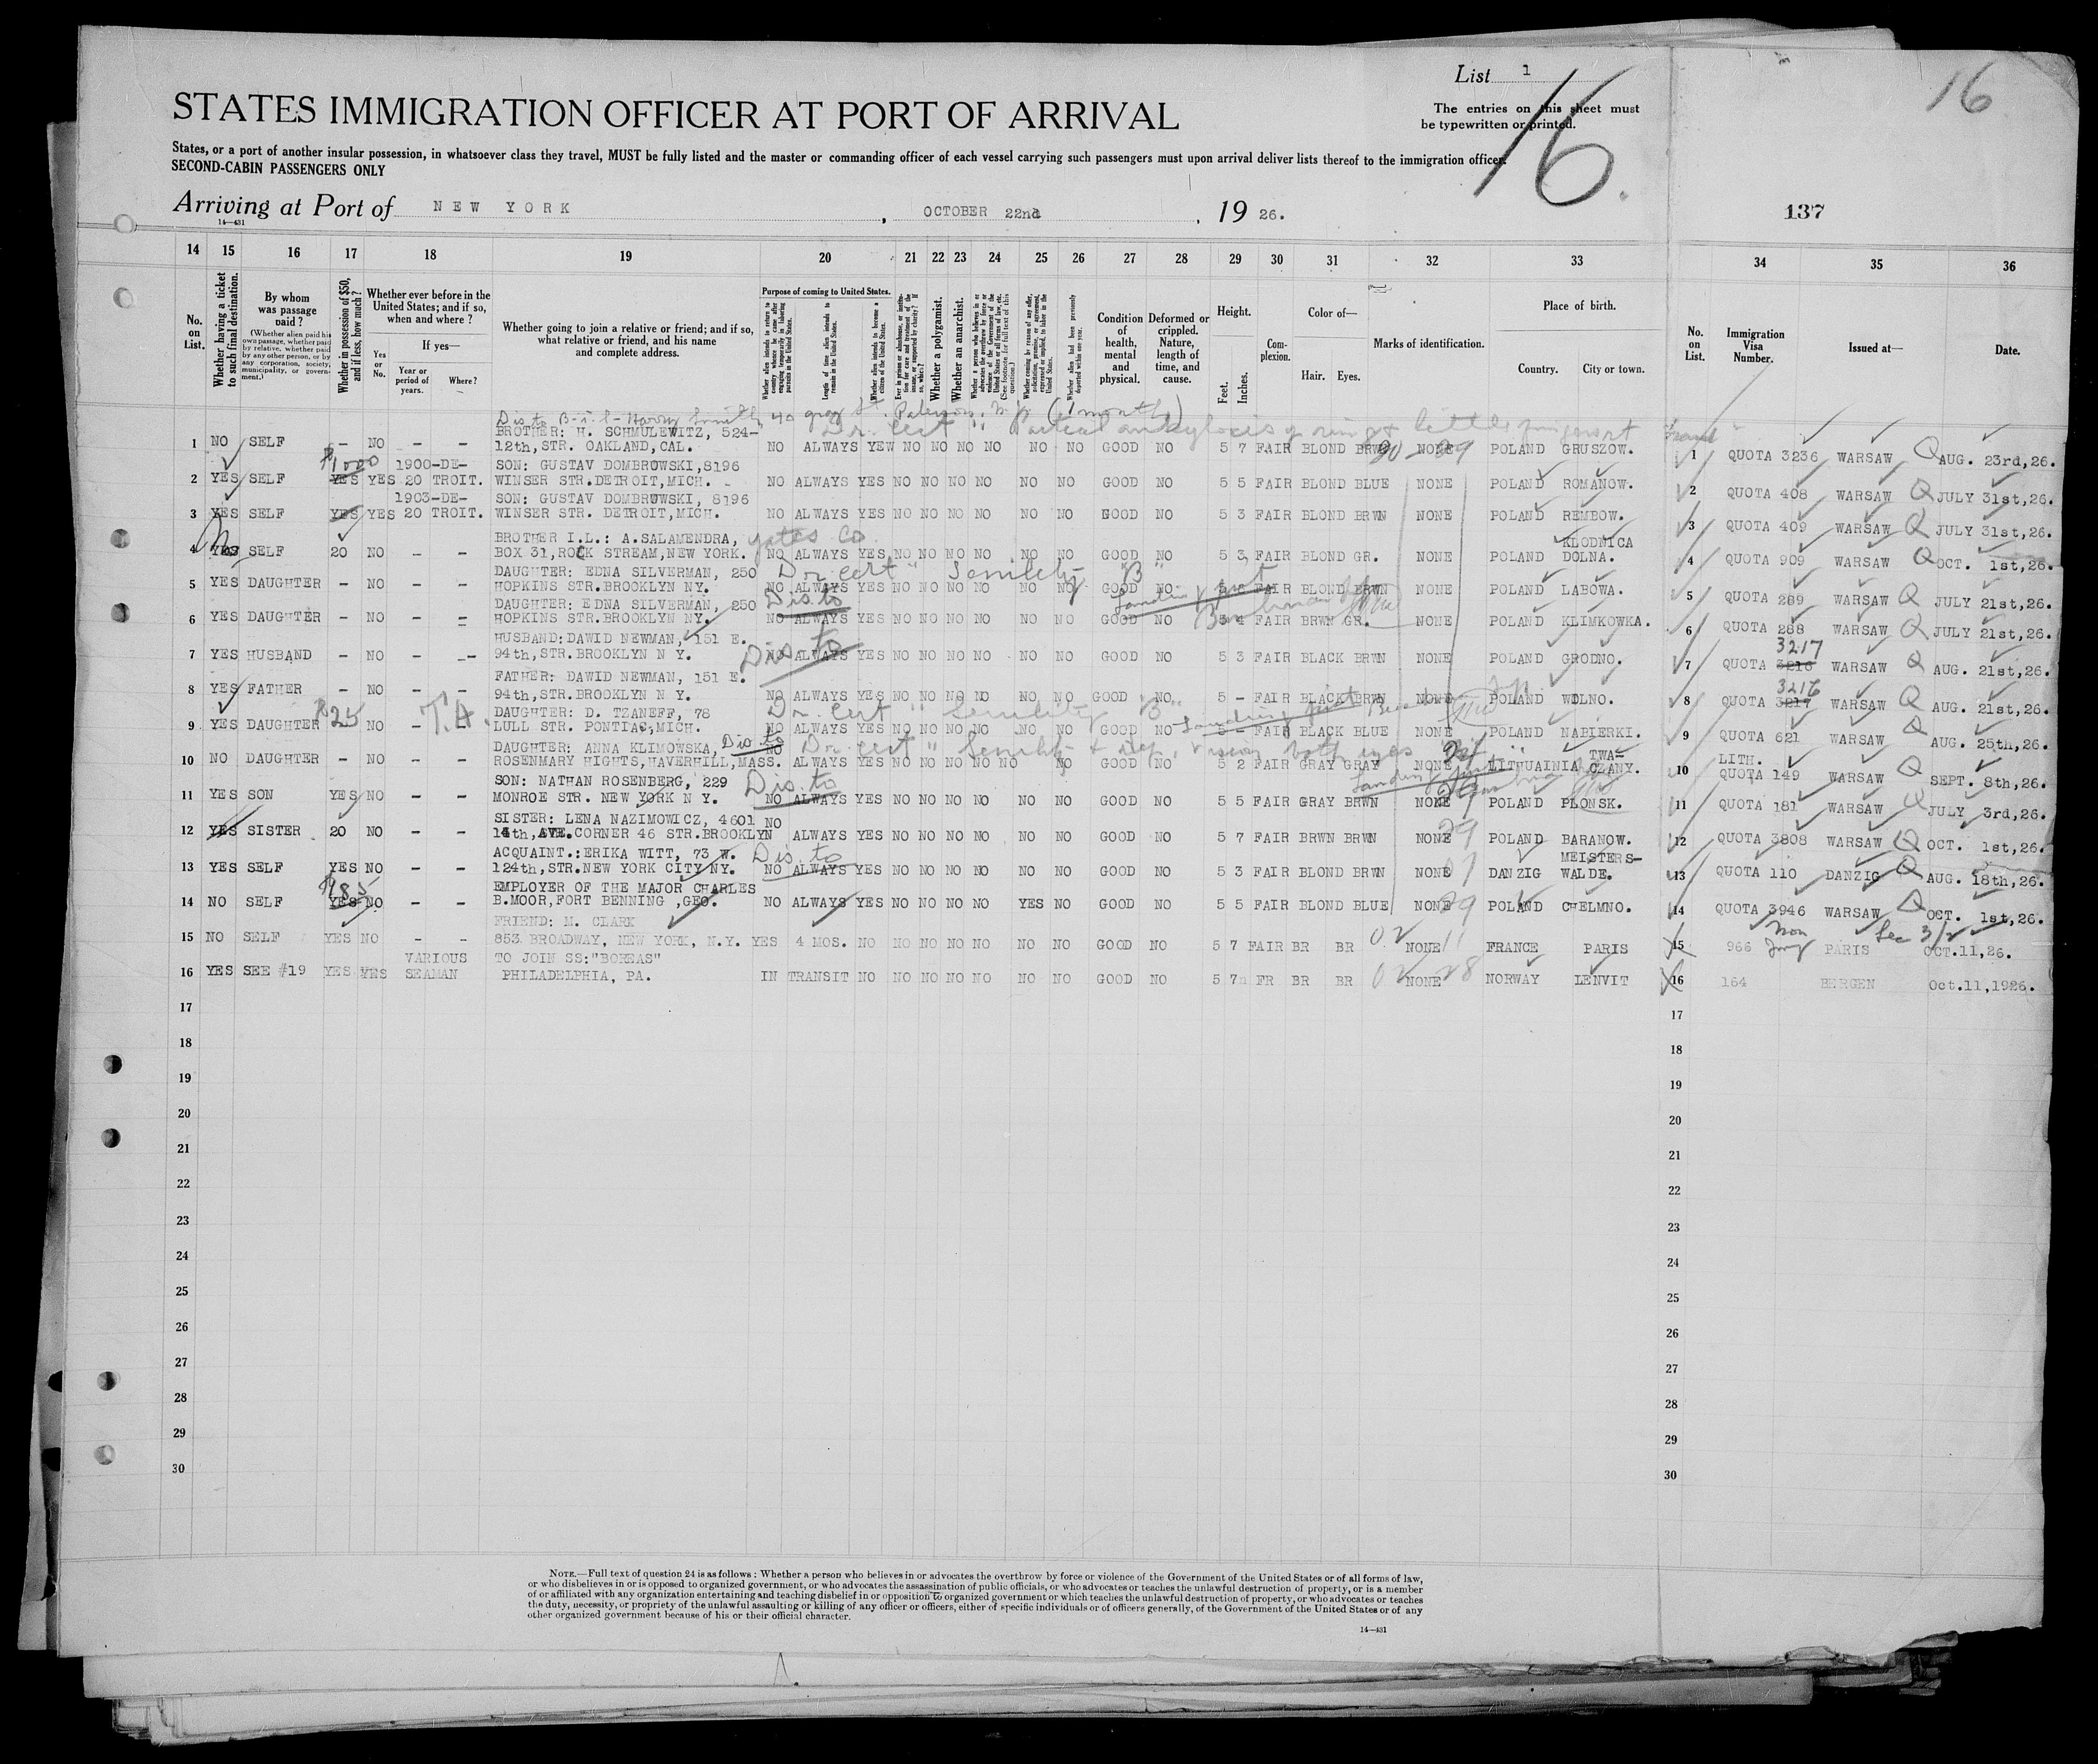 List 1
16
16
STATES IMMIGRATION OFFICER AT PORT OF ARRIVAL
The entries on this sheet must
be typewritten or printed.
States, or a port of another insular possession, in whatsoever class they travel, MUST be fully listed and the master or commanding officer of each vessel carrying such passengers must upon arrival deliver lists thereof to the immigration officer.
SECOND-CABIN PASSENGERS ONLY
Arriving at Port of NEW YORK, OCTOBER 22nd, 19 26.
14—431
137
14 15 16 17 18 19 20 21 22 23 24 25 26 27 28 29 30 31 32 33 34 35 36
No. on List.
Whether having a ticket to such final destination.
By whom was passage paid?
(Whether alien paid his own passage, whether paid by relative, whether paid by any other person, or by any corporation, society, municipality, or government.)
Whether in possession of $50, and if less, how much?
Whether ever before in the United States; and if so, when and where?
If yes—
Yes or No.
Year or period of years.
Where?
Whether going to join a relative or friend; and if so, what relative or friend, and his name and complete address.
Purpose of coming to United States.
Whether alien intends to return to country whence he came after engaging temporarily in laboring pursuits in the United States.
Length of time alien intends to remain in the United States.
Whether alien intends to become a citizen of the United States.
Ever in prison or almshouse, or institution for care and treatment of the insane, or supported by charity? If so, which?
Whether a polygamist.
Whether an anarchist.
Whether a person who believes in or advocates the overthrow by force or violence of the Government of the United States or all forms of law, etc. (See footnote for full text of this question.)
Whether coming by reason of any offer, solicitation, promise, or agreement, expressed or implied, to labor in the United States.
Whether alien had been previously deported within one year.
Condition of health, mental and physical.
Deformed or crippled. Nature, length of time, and cause.
Height.
Feet. Inches.
Complexion.
Color of—
Hair. Eyes.
Marks of identification.
Place of birth.
Country. City or town.
No. on List.
Immigration Visa Number.
Issued at—
Date.
Dis to B-i-l- Harry Smith, 40 gray St. Paterson, N.J. (1 month)
Dr. Cert " Partial ankylosis of ring & little finger rt hand "
BROTHER: H. SCHMULEWITZ, 524-
1 NO SELF – NO – – 12th,STR. OAKLAND,CAL. NO ALWAYS YEW NO NO NO NO NO NO GOOD NO 5 7 FAIR BLOND BRWN NONE POLAND GRUSZOW. 1 QUOTA 3236 WARSAW Q AUG. 23rd,26.
$1000 1900-DE- SON: GUSTAV DOMBROWSKI,8196
2 YES SELF YES YES 20 TROIT. WINSER STR.DETROIT,MICH. NO ALWAYS YES NO NO NO NO NO NO GOOD NO 5 5 FAIR BLOND BLUE NONE POLAND ROMANOW. 2 QUOTA 408 WARSAW Q JULY 31st,26.
1903-DE- SON: GUSTAV DOMBRUWSKI, 8196
3 YES SELF YES YES 20 TROIT. WINSER STR. DETROIT,MICH. NO ALWAYS YES NO NO NO NO NO NO GOOD NO 5 3 FAIR BLOND BRWN NONE POLAND REMBOW. 3 QUOTA 409 WARSAW Q JULY 31st,26.
No BROTHER I.L.: A.SALAMENDRA, yates Co. KLODNICA
4 YES SELF 20 NO – – BOX 31,ROCK STREAM,NEW YORK. NO ALWAYS YES NO NO NO NO NO NO GOOD NO 5 3 FAIR BLOND GR. NONE POLAND DOLNA. 4 QUOTA 909 WARSAW Q OCT. 1st,26.
DAUGHTER: EDNA SILVERMAN, 250 Dr. Cert " Senility "B"
5 YES DAUGHTER – NO – – HOPKINS STR.BROOKLYN NY. NO ALWAYS YES NO NO NO NO NO NO GOOD NO FAIR BLOND BRWN NONE POLAND LABOWA. 5 QUOTA 289 WARSAW Q JULY 21st,26.
DAUGHTER: EDNA SILVERMAN, 250 Dis. to
6 YES DAUGHTER – NO – – HOPKINS STR.BROOKLYN NY. NO ALWAYS YES NO NO NO NO NO NO GOOD NO 5 4 FAIR BRWN GR. NONE POLAND KLIMKOWKA. 6 QUOTA 288 WARSAW Q JULY 21st,26.
HUSBAND:DAWID NEWMAN, 151 E. Dis to 3217
7 YES HUSBAND – NO – – 94th,STR.BROOKLYN N Y. NO ALWAYS YES NO NO NO NO NO NO GOOD NO 5 3 FAIR BLACK BRWN NONE POLAND GRODNO. 7 QUOTA 3216 WARSAW Q AUG. 21st,26.
FATHER: DAWID NEWMAN, 151 E. 3216
8 YES FATHER – NO – – 94th,STR.BROOKLYN N Y. NO ALWAYS YES NO NO NO NO NO NO GOOD NO 5 – FAIR BLACK BRWN NONE POLAND WILNO. 8 QUOTA 3217 WARSAW Q AUG. 21st,26.
DAUGHTER: D. TZANEFF, 78 Dr. Cert " Senility "B"
9 YES DAUGHTER $25 NO – T.A. LULL STR. PONTIAC,MICH. NO ALWAYS YES NO NO NO NO NO NO GOOD NO 5 – FAIR BLACK BLUE NONE POLAND NAPIERKI. 9 QUOTA 621 WARSAW Q AUG. 25th,26.
DAUGHTER: ANNA KLIMOWSKA, Dis. to Dr. Cert " Senility & def. vision both eyes TWA- LITH.
10 NO DAUGHTER – NO – – ROSENMARY HIGHTS,HAVERHILL,MASS. NO ALWAYS YES NO NO NO NO NO NO GOOD NO 5 2 FAIR GRAY GRAY NONE LITHUAINIA CZANY. 10 QUOTA 149 WARSAW Q SEPT. 8th,26.
SON: NATHAN ROSENBERG, 229 Dis. to
11 YES SON YES NO – – MONROE STR. NEW YORK N Y. NO ALWAYS YES NO NO NO NO NO NO GOOD NO 5 5 FAIR GRAY BRWN NONE POLAND PLONSK. 11 QUOTA 181 WARSAW Q JULY 3rd,26.
SISTER: LENA NAZIMOWICZ, 4601 NO
12 YES SISTER 20 NO – – 14th,AVE.CORNER 46 STR.BROOKLYN ALWAYS YES NO NO NO NO NO NO GOOD NO 5 7 FAIR BRWN BRWN NONE 29 POLAND BARANOW. 12 QUOTA 3808 WARSAW Q OCT. 1st,26.
ACQUAINT.:ERIKA WITT, 73 W. Dis. to MEISTERS-
13 YES SELF YES NO – – 124th,STR.NEW YORK CITY NY. NO ALWAYS YES NO NO NO NO NO NO GOOD NO 5 3 FAIR BLOND BRWN NONE DANZIG WALDE. 13 QUOTA 110 DANZIG Q AUG. 18th,26.
$985 EMPLOYER OF THE MAJOR CHARLES
14 NO SELF YES NO – – B.MOOR,FORT BENNING ,GEO. NO ALWAYS YES NO NO NO NO YES NO GOOD NO 5 5 FAIR BLOND BLUE NONE 29 POLAND CHELMNO. 14 QUOTA 3946 WARSAW Q OCT. 1st,26.
FRIEND: M. CLARK Non Sec 3/2
15 NO SELF YES NO – – 853 BROADWAY, NEW YORK, N.Y. YES 4 MOS. NO NO NO NO NO NO NO GOOD NO 5 7 FAIR BR BR NONE 11 FRANCE PARIS 15 966 PARIS OCT.11,26.
VARIOUS TO JOIN SS:"BOREAS"
16 YES SEE #19 YES YES SEAMAN PHILADELPHIA, PA. IN TRANSIT NO NO NO NO NO NO NO GOOD NO 5 7 FR BR BR NONE 28 NORWAY LENVIT 16 164 BERGEN Oct.11,1926.
17 17
18 18
19 19
20 20
21 21
22 22
23 23
24 24
25 25
26 26
27 27
28 28
29 29
30 30
NOTE.—Full text of question 24 is as follows: Whether a person who believes in or advocates the overthrow by force or violence of the Government of the United States or of all forms of law,
or who disbelieves in or is opposed to organized government, or who advocates the assassination of public officials, or who advocates or teaches the unlawful destruction of property, or is a member
of or affiliated with any organization entertaining and teaching disbelief in or opposition to organized government or which teaches the unlawful destruction of property, or who advocates or teaches
the duty, necessity, or propriety of the unlawful assaulting or killing of any officer or officers, either of specific individuals or of officers generally, of the Government of the United States or of any
other organized government because of his or their official character.
14—431